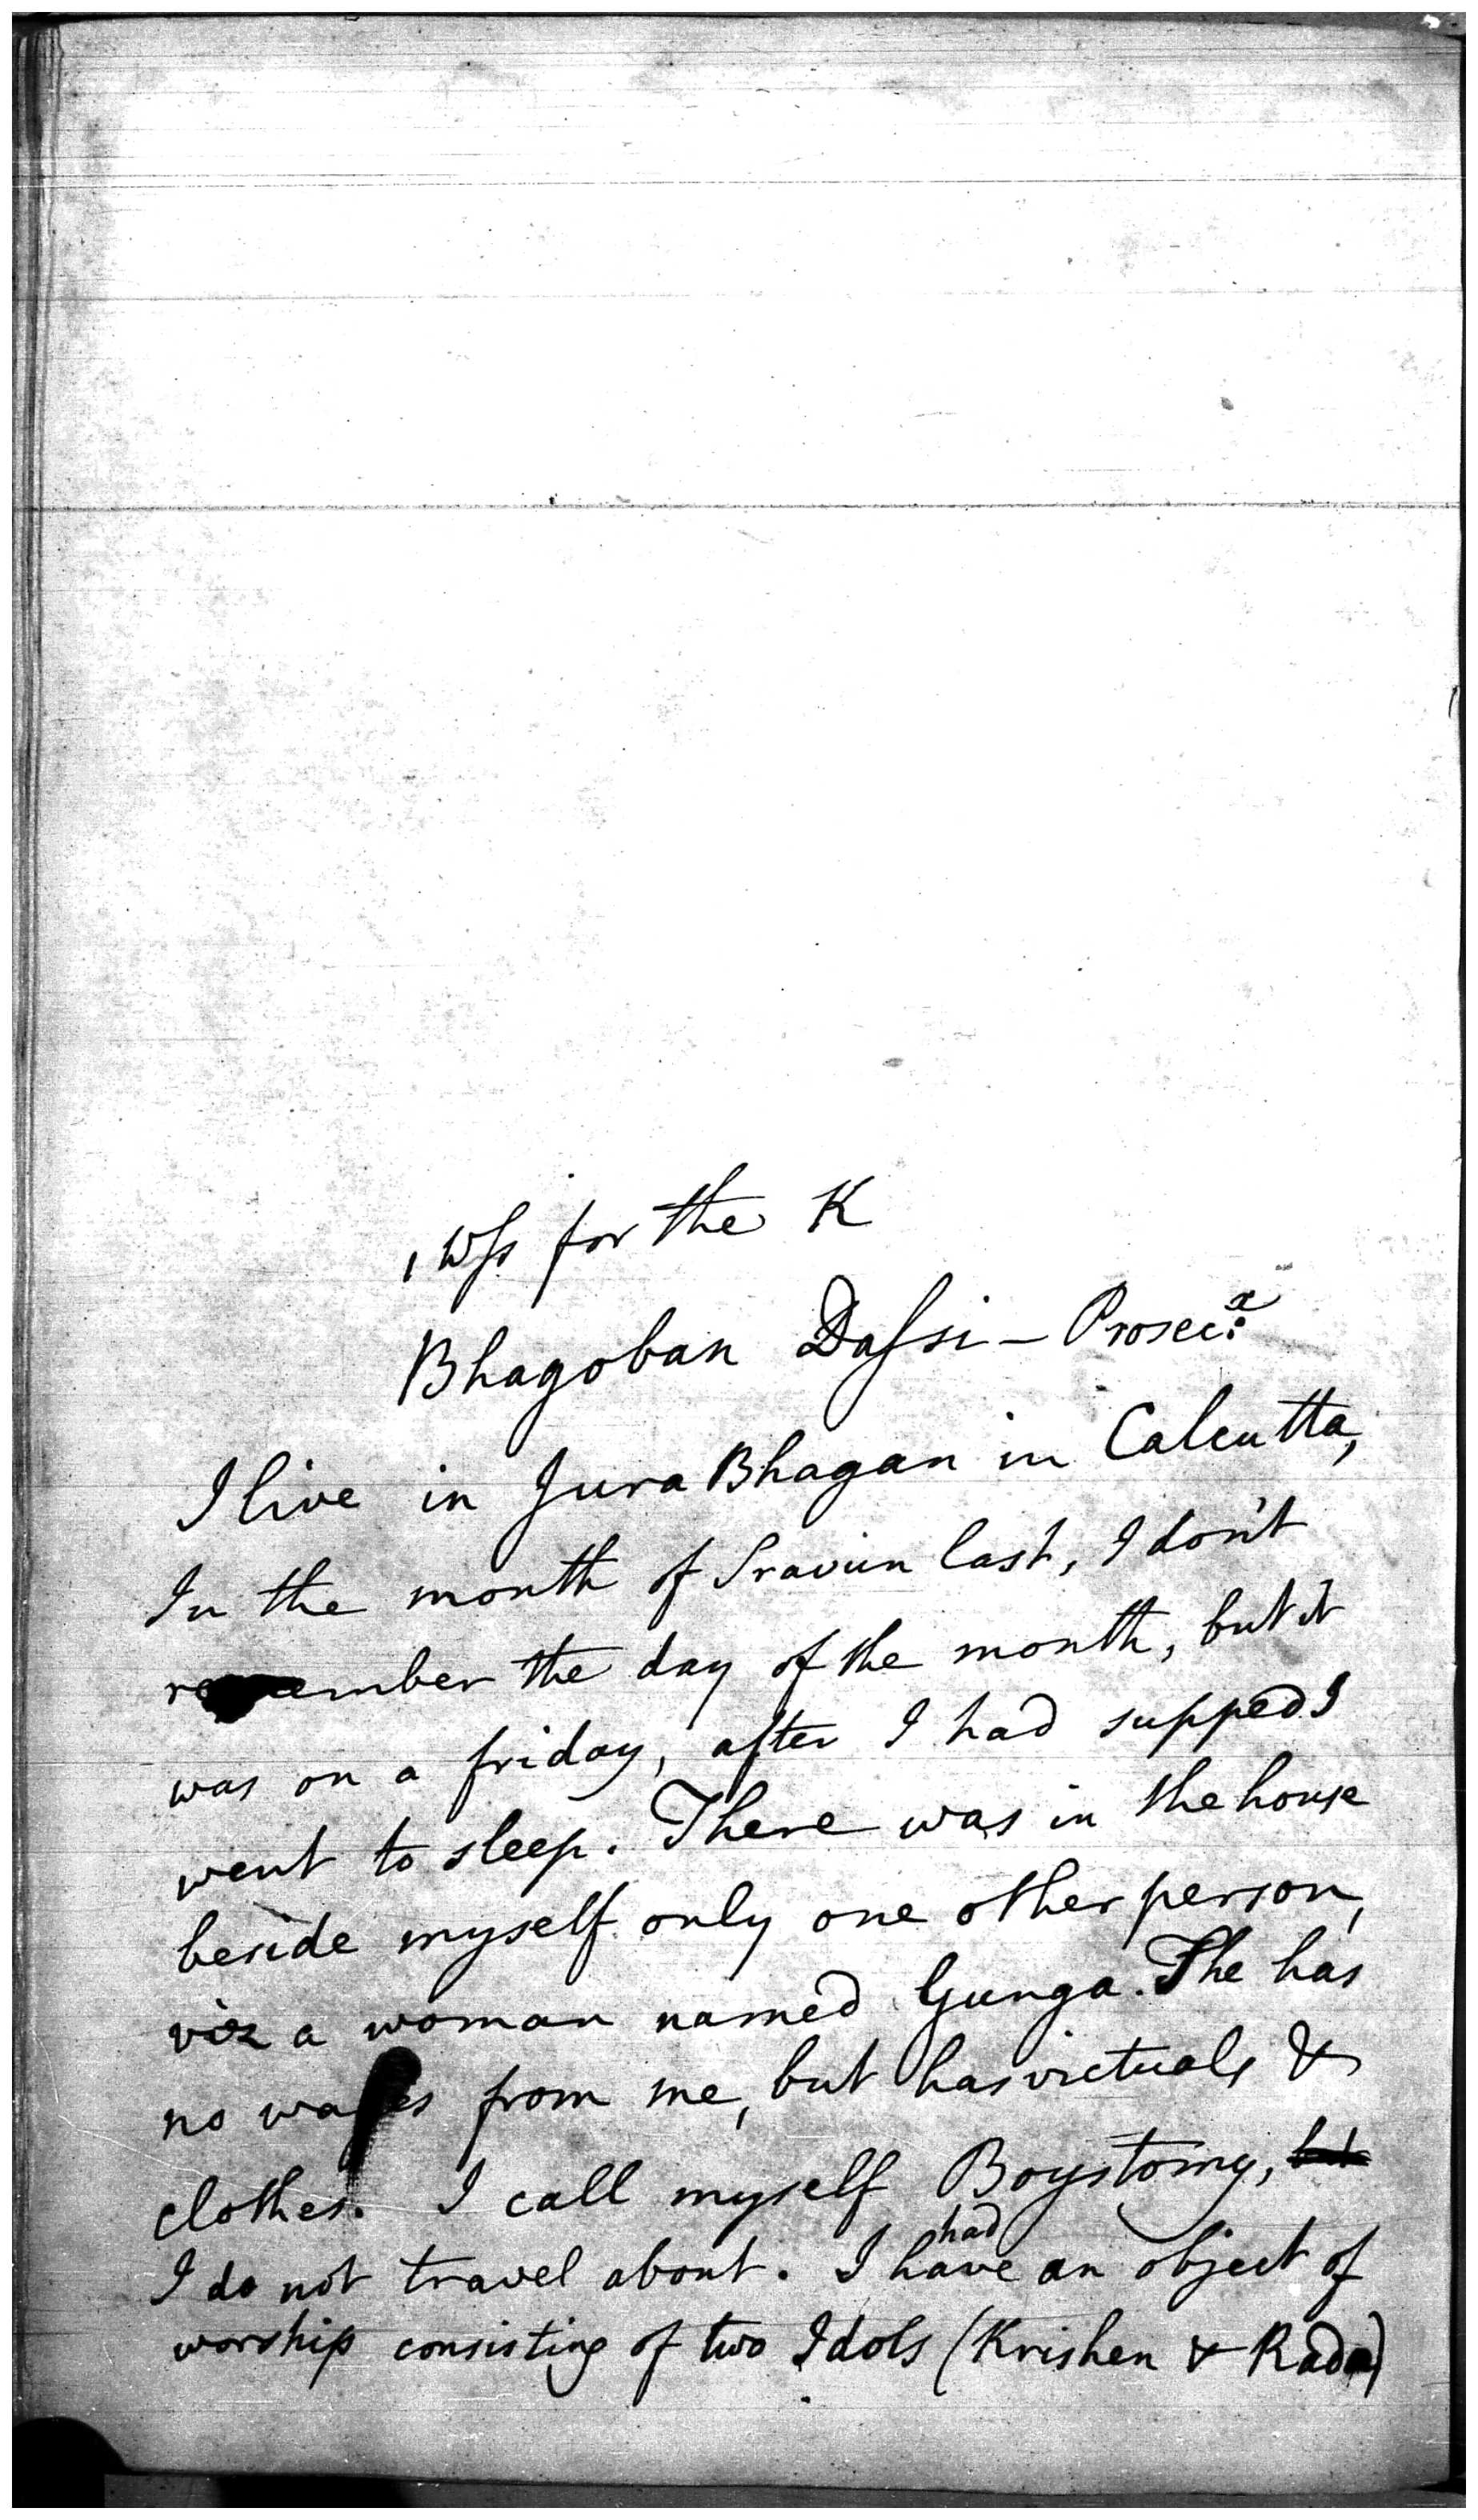 1 Wss for the K
Bhagoban Dassi - Prosec:x
I live in Jura Bhagan in Calcutta,
In the month of Sravun last, I don't
remember the day of the month, but it
was on a friday, after I had supped I
went to sleep. There was in the house
beside myself only one other person,
viz a woman named Gunga. She has
no wages from me, but has victuals &
clothes. I call myself Boystomy, but
I do not travel about. I have had an object of
worship consisting of two Idols (Krishen & Rada)